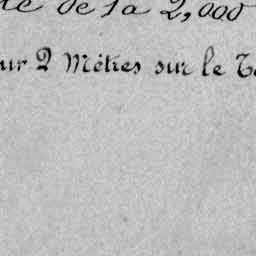 de la 2,000
ur 2 Mètres sur le